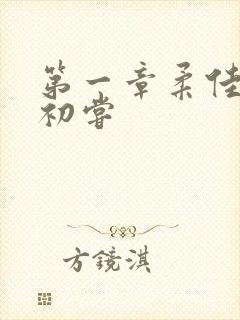 第一章柔佳
初尝
方镜淇